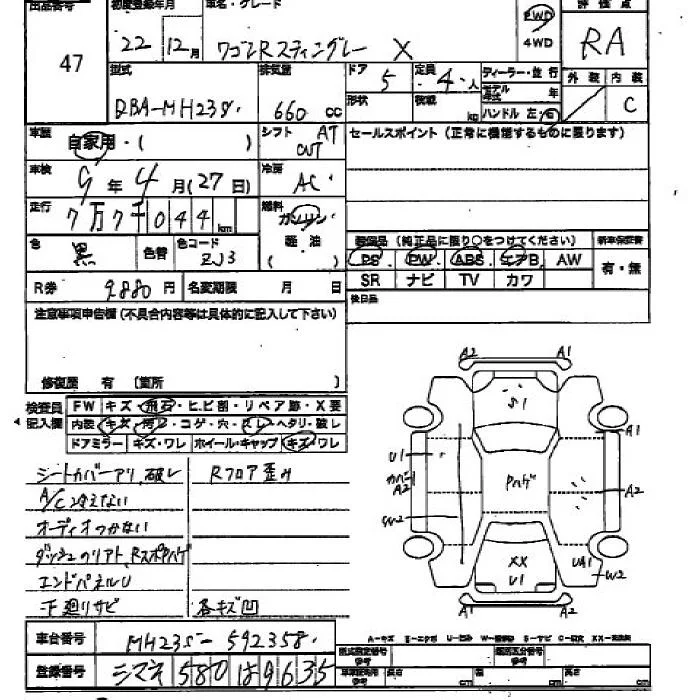 出品番号 初度登録年月 車名・グレード 評価点
47 22年12月 ワゴンRスティングレー X 2WD 4WD RA
型式 排気量 ドア 5 定員 4人 ディーラー・並行 外装 内装
DBA-MH23S 660cc 形状 積載 kg モデル年式 年 C
ハンドル 左・右
車歴 自家用・( ) シフト AT CVT セールスポイント(正常に機能するものに限ります)
車検 9年4月(27日) 冷房 AC
走行 7万7千044km 燃料 ガソリン・軽油 ( )
色 黒 色替 色コード ZJ3 装備品(純正品に限り○をつけてください) 新車保証書
PS PW ABS エアB AW 有・無
SR ナビ TV カワ
R券 9880円 名変期限 月 日 後日品
注意事項申告欄(不具合内容等は具体的に記入して下さい)
修復歴 有 (箇所 )
検査員記入欄 FW キズ・飛石・ヒビ割・リペア跡・X要
内装 キズ・汚レ・コゲ・穴・スレ・ヘタリ・破レ
ドアミラー キズ・ワレ ホイール・キャップ キズ・ワレ
シートカバーアリ、破レ Rフロア歪み
A/C冷えない
オーディオつかない
エンドパネルU
下廻りサビ 各キズ凹
A2 A1
S1
A1
U1
カバー A2 Pハゲ A2
W2
XX U1 UA1 W2
A1 A2
車台番号 MH23S-592358
登録番号 シマネ 580 は 9635
型式指定番号 参考 類別区分番号 参考
長さ cm 幅 cm 高さ cm